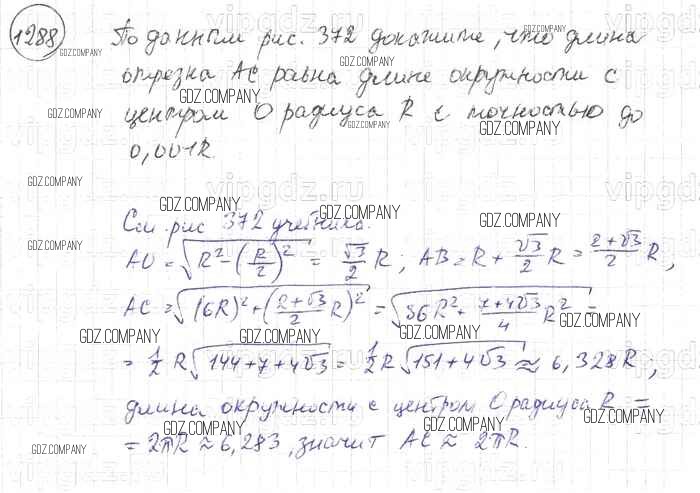 1288 По данным рис. 372 докажите, что длина
отрезка AC равна длине окружности с
центром O радиуса R с точностью до
0,001R.
См. рис 372 учебника.
AO = √(R² - (R/2)²) = √3/2 R ; AB = R + √3/2 R = (2+√3)/2 R,
AC = √((6R)² + ((2+√3)/2 R)²) = √(36R² + (7+4√3)/4 R²) =
= 1/2 R √(144+7+4√3) = 1/2 R √(151+4√3) ≈ 6,328R ;
длина окружности с центром O радиуса R =
= 2πR ≈ 6,283, значит AC ≈ 2πR.
vipgdz.ru
GDZ.COMPANY